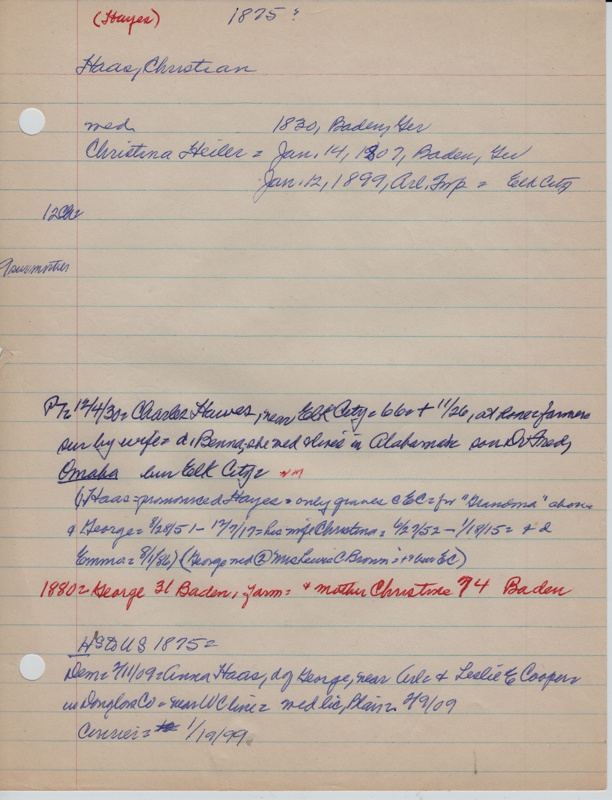 (Hayes) 1875?
Haas, Christian
med. 1830, Baden, Ger
Christina Heiler = Jan. 14, 1807, Baden, Ger
Jan. 12, 1899, Arl. Twp = Elk City
12
mother
12/4/30 = Charles Hawes, near Elk City = 66 = + 11/26, at home = farmer
sur by wife = d, Benna, she med & lives in Alabama & son Dr Fred,
Omaha bur Elk City =
(Haas = pronounced Hayes = only graves c EC = for "Grandma" above
& George = 8/28/51 - 12/7/17 = his wife Christina = 6/27/52 - 1/18/15 = & d
Emma = 8/1/86) (George med @ "Mrs Lewis C Brown" = + bur EC)
1880 = George 31 Baden, farm = & mother Christine 74 Baden
H to US 1875 =
Dem = 2/11/09 = Anna Haas, d of George, near Arl = & Leslie E Cooper =
in Douglas Co = near W Cline = med lic, Blair = 2/9/09
Courier = 1/19/99